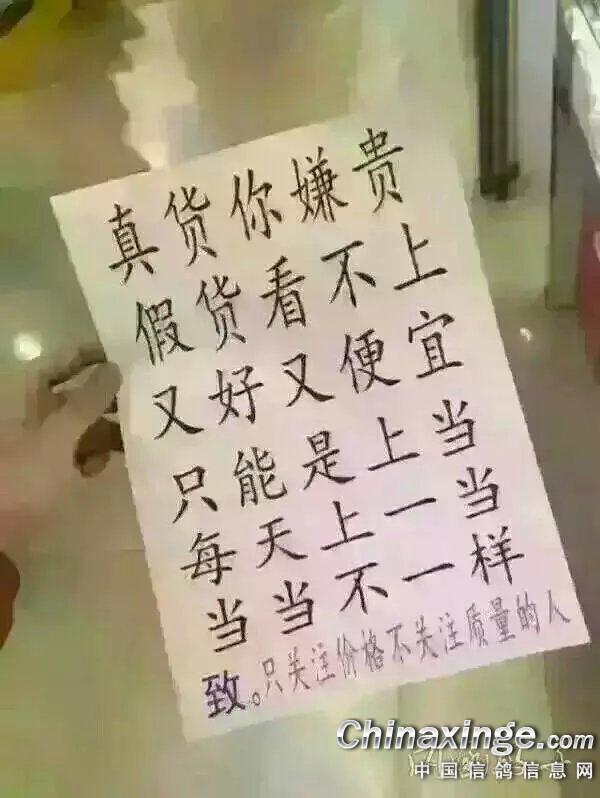 真货你嫌贵
假货看不上
又好又便宜
只能是上当
每天上一当
当当不一样
致。只关注价格不关注质量的人
Chinaxinge.com
中国信鸽信息网